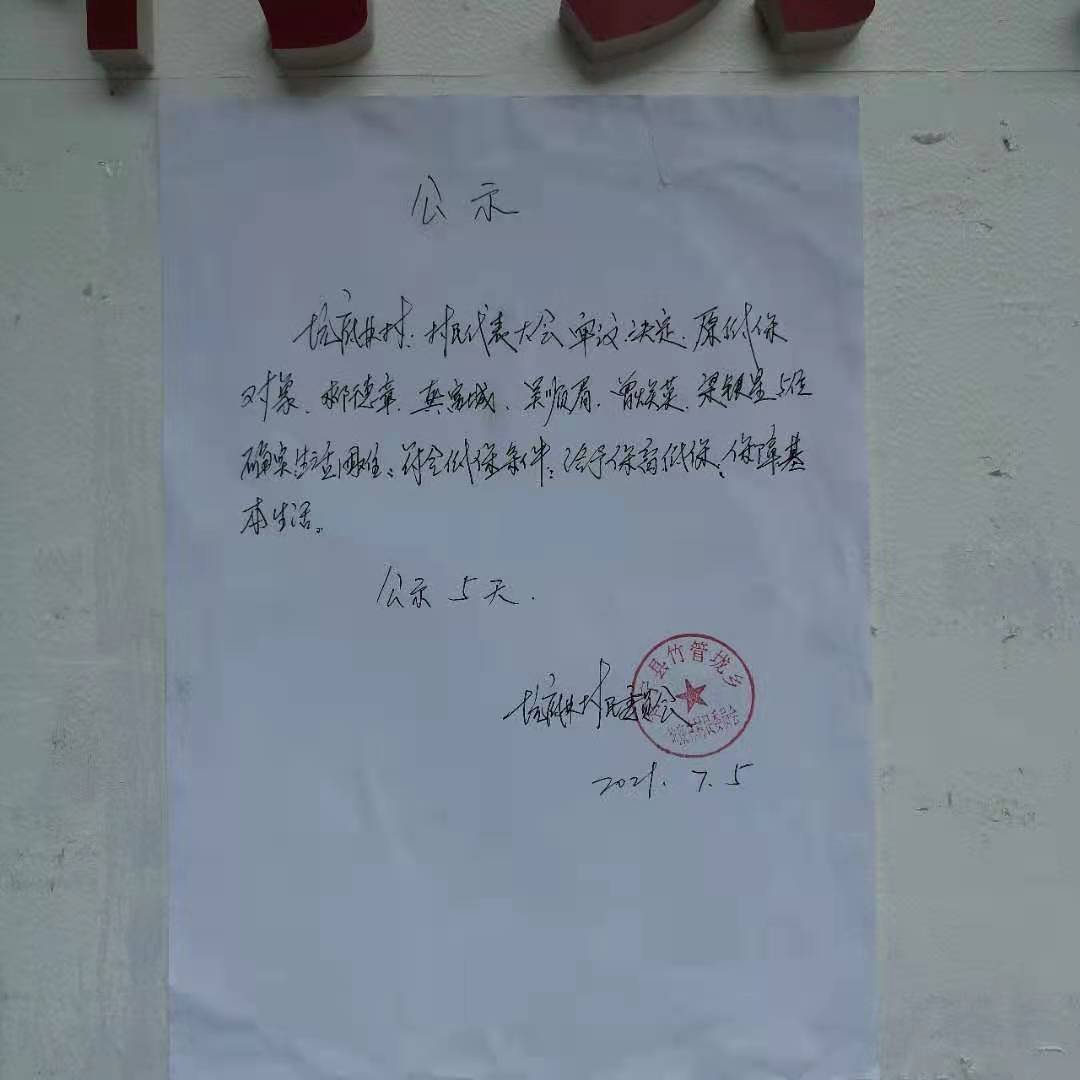 公示
坑底村.村民代表大会审议.决定.原低保
对象.德章.城.吴顺.曾菜.梁银星5位
确实生活困难.符合低保条件.给予保留低保.保障基
本生活。
公示5天.
坑底村民委员会
县竹管垅乡
村民委员会
2021.7.5